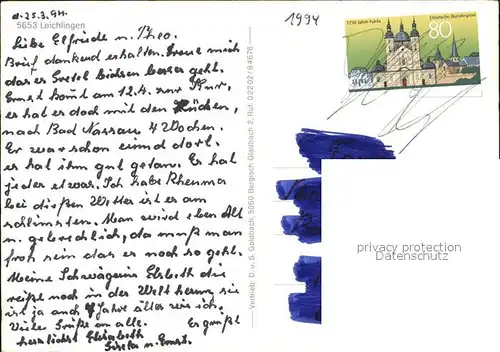 d. 25.3.94.
5653 Leichlingen
Liebe Elfriede u. Theo.
Brief dankend erhalten. Freue mich
das es Gretel bischen besser geht.
Ernst kommt am 12.4. zur Kur,
er hat es doch mit den Rücken,
nach Bad Nassau 4 Wochen.
Er war schon einmal dort.
es hat ihm gut getan. Er hat
jeder etwas. Ich habe Rheuma
bei dießen Wetter ist er am
schlimsten. Man wird eben Alt
u. gebrechlich, da muß man
froh sein das es noch so geht.
Meine Schwägerin Elsbeth die
reißt noch in der Welt herum, sie
ist ja auch 4 Jahre älter wie ich.
Viele Grüße an alle. Es grüßt
herzlichst Elisabeth
u. Ernst.
Vertrieb: D. u. S. Goldbach, 5060 Bergisch Gladbach 2, Ruf: 02202/84678
1994
1250 Jahre Fulda
Deutsche Bundespost
80
privacy protection
Datenschutz